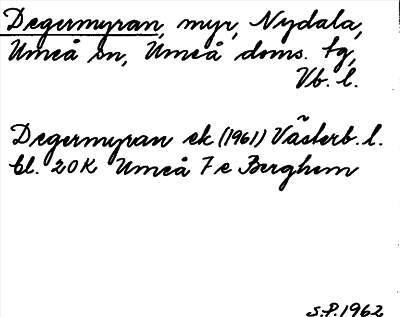 Degermyran, myr, Nydala,
Umeå sn, Umeå doms. tg,
Vb. l.
Degermyran ek (1961) Västerb. l.
bl. 20K Umeå 7e Berghem
S.P. 1962